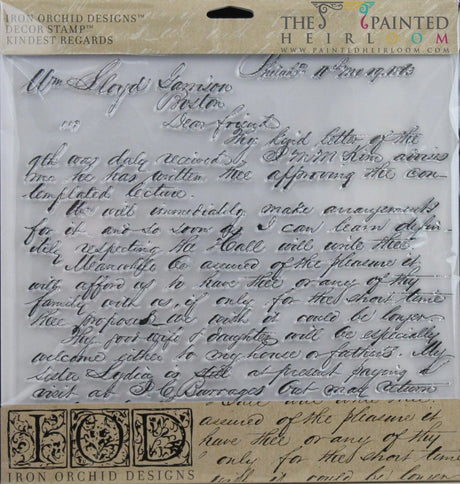 IRON ORCHID DESIGNS™
DECOR STAMP™
KINDEST REGARDS
THE PAINTED
HEIRLOOM
WWW.PAINTEDHEIRLOOM.COM
Wm Lloyd Garrison
Boston
Dear friend
Thy kind letter of the
9th was duly received by J M M Kim advises
me he has written thee approving the con-
templated lecture.
We will immediately make arrangements
for it and so soon as I can learn defin-
itely respecting the Hall will write thee
Meanwhile be assured of the pleasure it
will afford us to have thee or any of thy
family with us, if only for the short time
thee proposes
with it could be longer.
Thy good wife & daughter will be especially
welcome either to my house or father's. My
sister Lydia is still at present paying a
visit at J. C. Burrages but may return
assured of the pleasure
have thee or any of thy
only for the short time
with it could be longer
IOD
IRON ORCHID DESIGNS